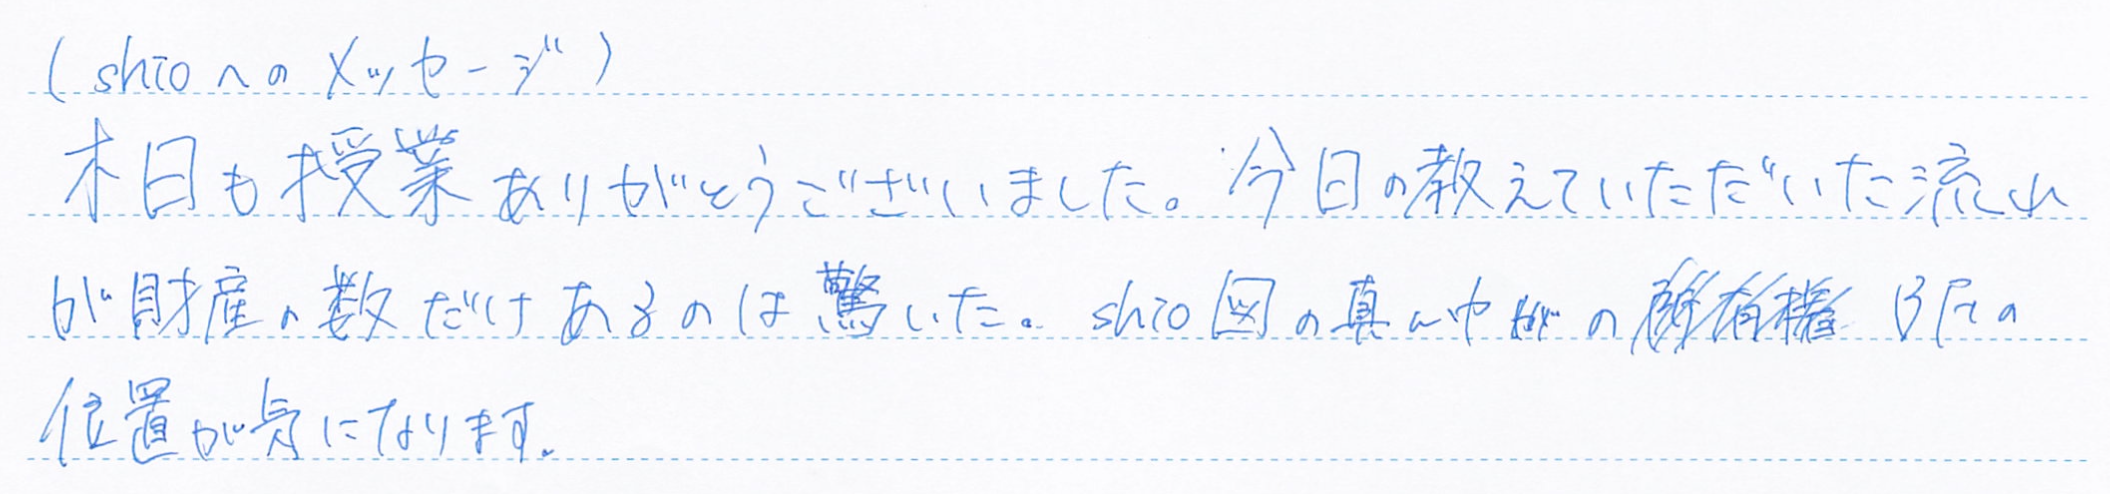 (shioへのメッセージ)
本日も授業ありがとうございました。今日の教えていただいた流れ
が財産の数だけあるのは驚いた。shio図の真ん中の
位置が気になります。